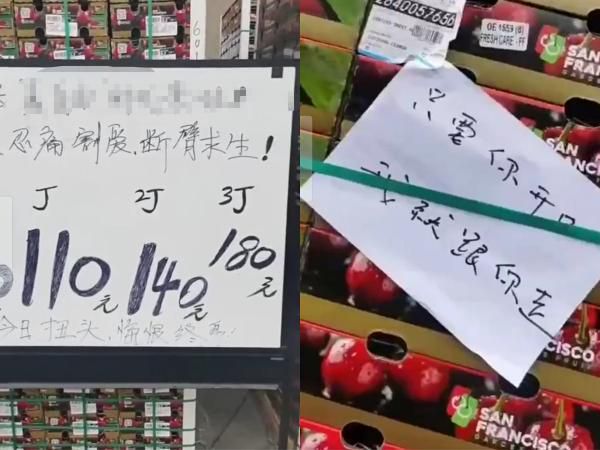 忍痛割爱,断臂求生!
J 2J 3J
110元 140元 180元
今日扭头,悔恨终
2840057656
OE 1559 (6)
FRESH CARE - FF
SAN
FRANCISCO
只要你开口
我就跟你走
CISCO
SAN
FRANCISCO